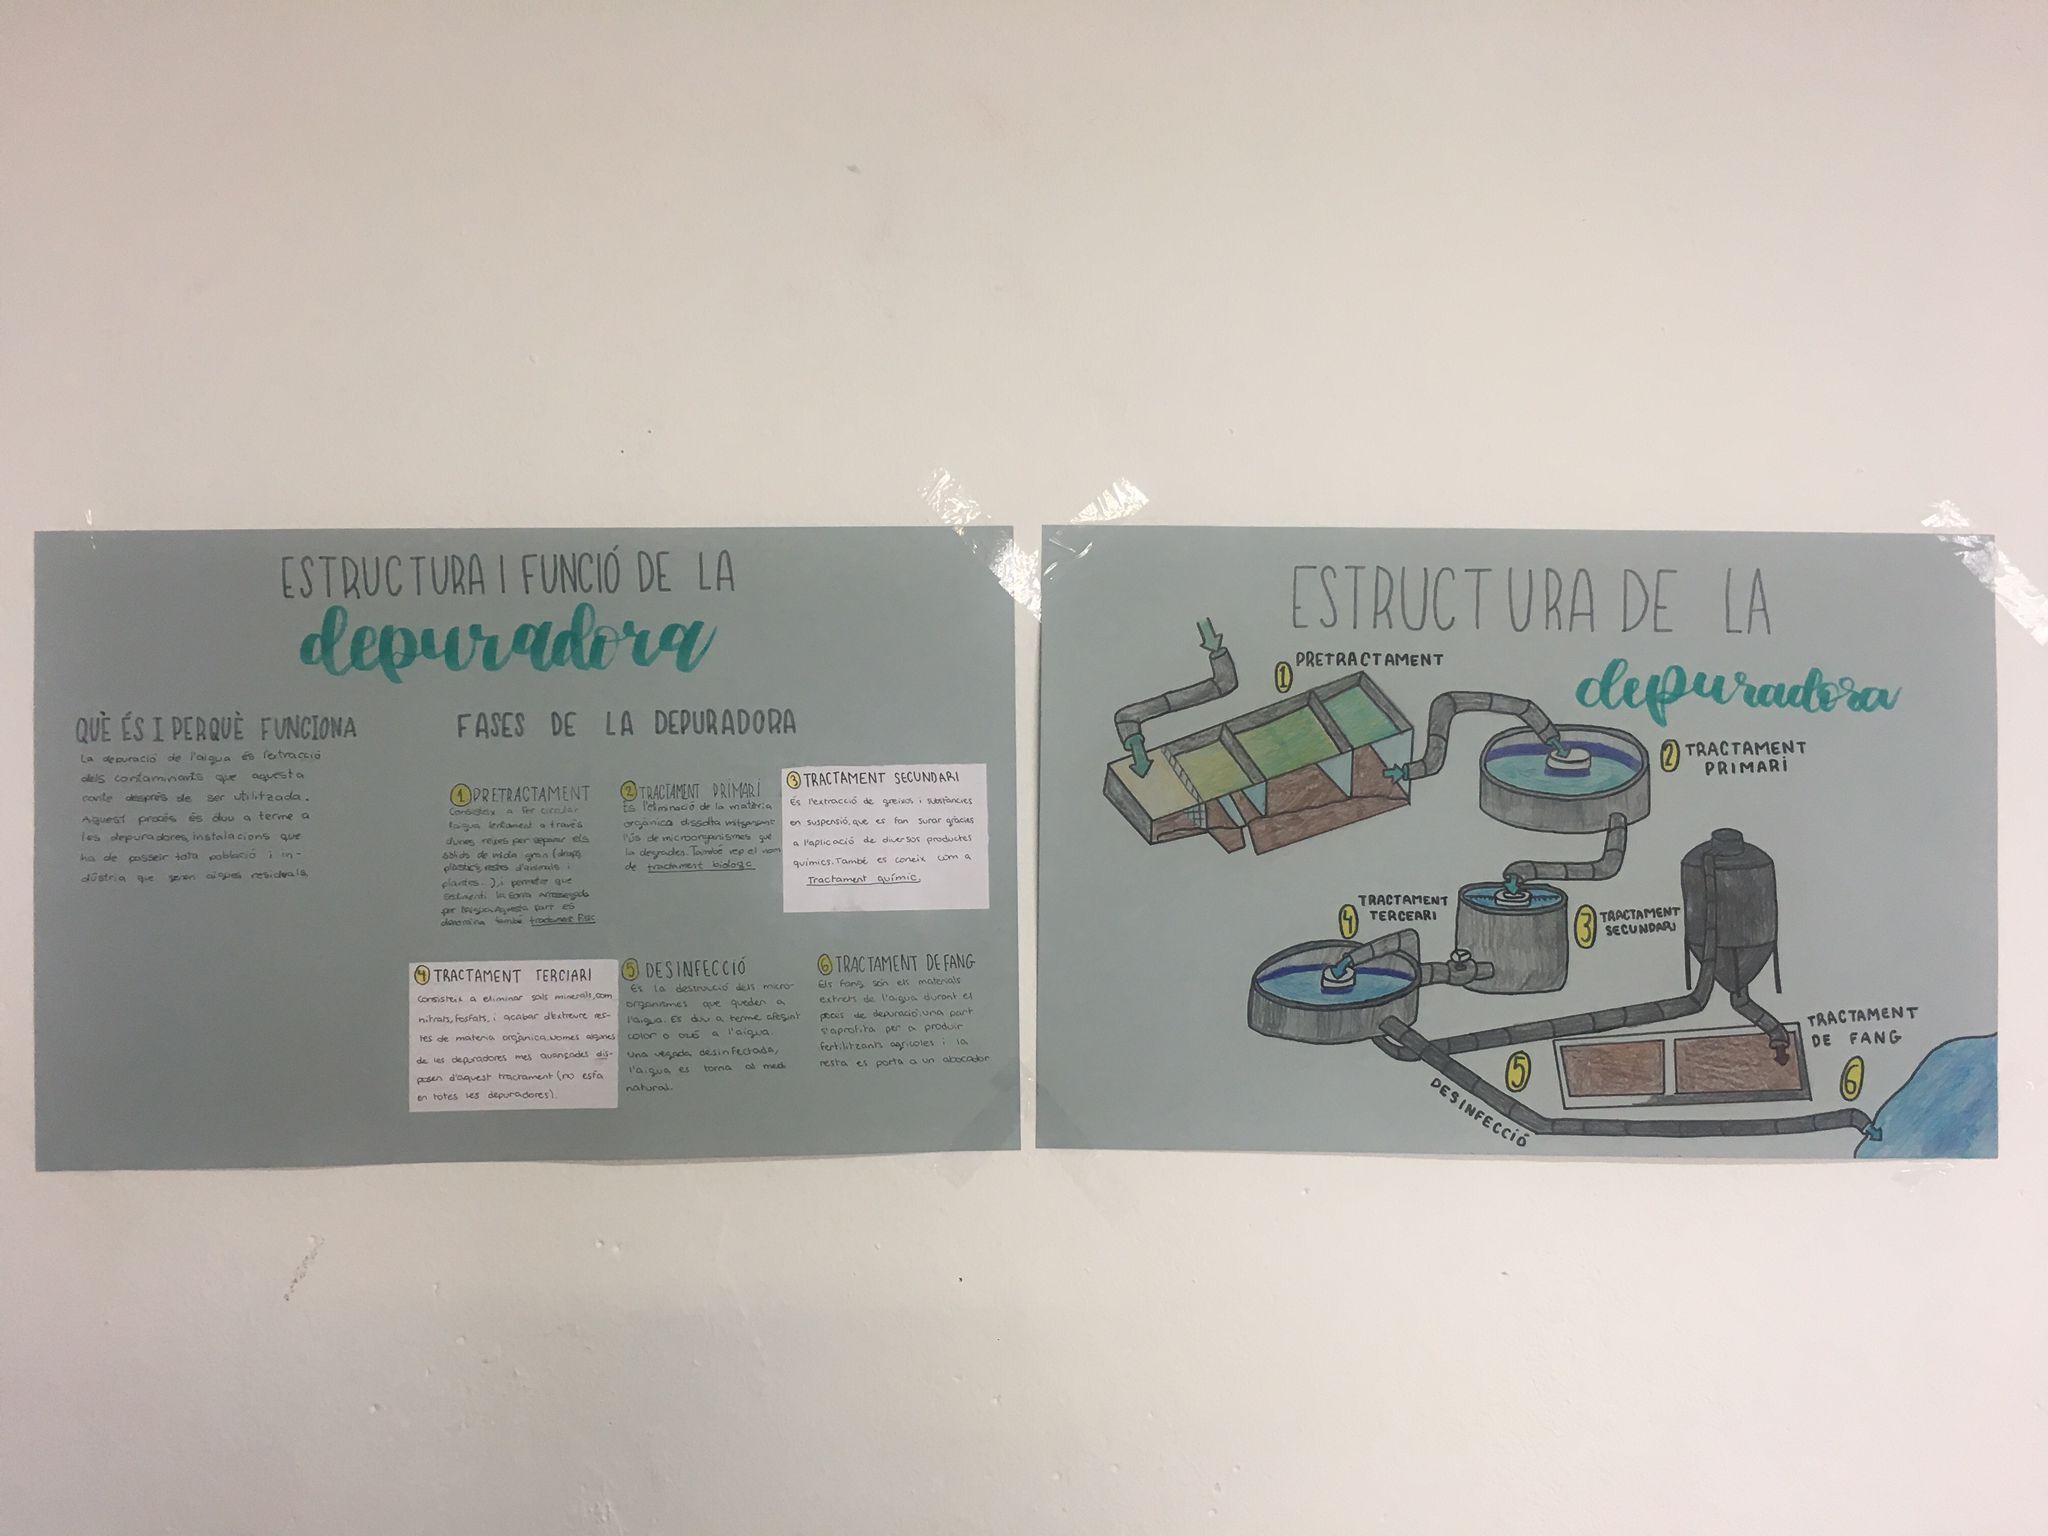 ESTRUCTURA I FUNCIÓ DE LA
depuradora
QUÈ ÉS I PERQUÈ FUNCIONA
La depuració de l'aigua és l'extracció
dels contaminants que aquesta
conté després de ser utilitzada.
Aquest procés és duu a terme a
les depuradores, instalacions que
ha de posseir tota població i in-
dústria que generi aigües residuals.
FASES DE LA DEPURADORA
1 PRETRACTAMENT
Consisteix a fer circular
l'aigua lentament a través
d'unes reixes per separar els
sòlids de mida gran (draps,
plàstics, restes d'animals i
plantes...), i permetre que
sedimenti la sorra arrossegada
per l'aigua. Aquesta part es
denomina també tractament físic
2 TRACTAMENT PRIMARI
És l'eliminació de la matèria
orgànica dissolta mitjançant
l'ús de microorganismes que
la degrades. També rep el nom
de tractament biologic
3 TRACTAMENT SECUNDARI
És l'extracció de greixos i substàncies
en suspensió, que es fan surar gràcies
a l'aplicació de diversos productes
químics. També es coneix com a
Tractament químic.
4 TRACTAMENT TERCIARI
Consisteix a eliminar sals minerals, com
nitrats, fosfats, i acabar d'extreure res-
tes de materia orgànica. Només algunes
de les depuradores mes avançades dis-
posen d'aquest tractament (no esfa
en totes les depuradores).
5 DESINFECCIÓ
És la destrucció dels micro-
organismes que queden a
l'aigua. Es duu a terme afegint
color o ozó a l'aigua.
Una vegada desinfectada,
l'aigua es torna al medi
natural.
6 TRACTAMENT DE FANG
Els fang són els materials
extrets de l'aigua durant el
poces de depuració, una part
s'aprofita per a produir
fertilitzants agrícoles i la
resta es porta a un abocador
ESTRUCTURA DE LA
depuradora
1 PRETRACTAMENT
2 TRACTAMENT
PRIMARI
3 TRACTAMENT
SECUNDARI
4 TRACTAMENT
TERCEARI
5
DESINFECCIÓ
TRACTAMENT
DE FANG
6